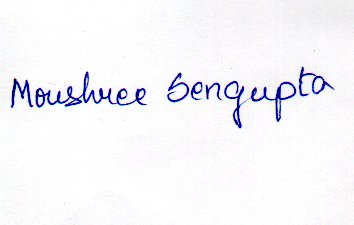 Moushree Sengupta